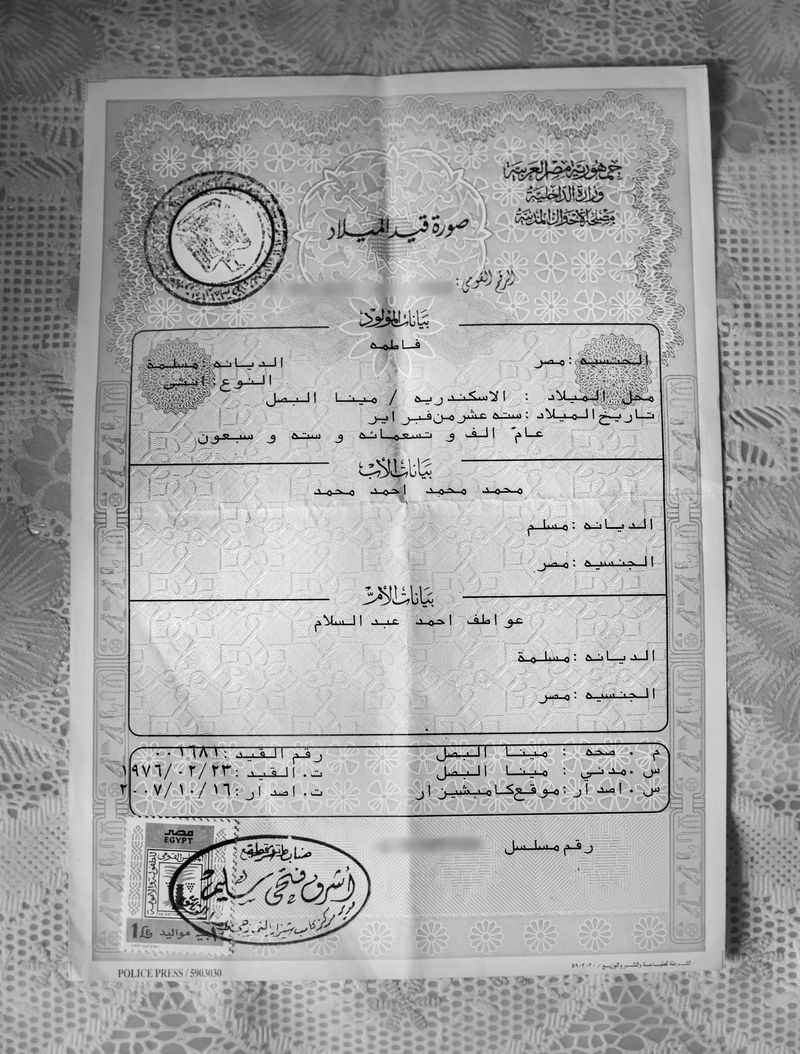 جمهورية مصر العربية
وزارة الداخلية
مصلحة الأحوال المدنية
صورة قيد الميلاد
الرقم القومي :
بيانات المولود
فاطمه
الجنسيه : مصر الديانه : مسلمة
النوع : انثى
محل الميلاد : الاسكندريه / مينا البصل
تاريخ الميلاد : سته عشر من فبراير
عام الف و تسعمائه و سته و سبعون
بيانات الأب
محمد محمد احمد محمد
الديانه : مسلم
الجنسيه : مصر
بيانات الأم
عواطف احمد عبد السلام
الديانه : مسلمة
الجنسيه : مصر
م . صحه : مينا البصل رقم القيد : ٠٠١٦٨١
س . مدني : مينا البصل ت . القيد : ١٩٧٦/٠٢/٢٣
س . اصدار : موقع كامبشيزار ت . اصدار : ٢٠٠٧/١٠/١٦
رقم مسلسل
مصر
EGYPT
أشرف فتحى سليم
مواليد
POLICE PRESS / 5903030
الشرطة للطباعة والنشر والتوزيع / ٥٩٠٣٠٣٠